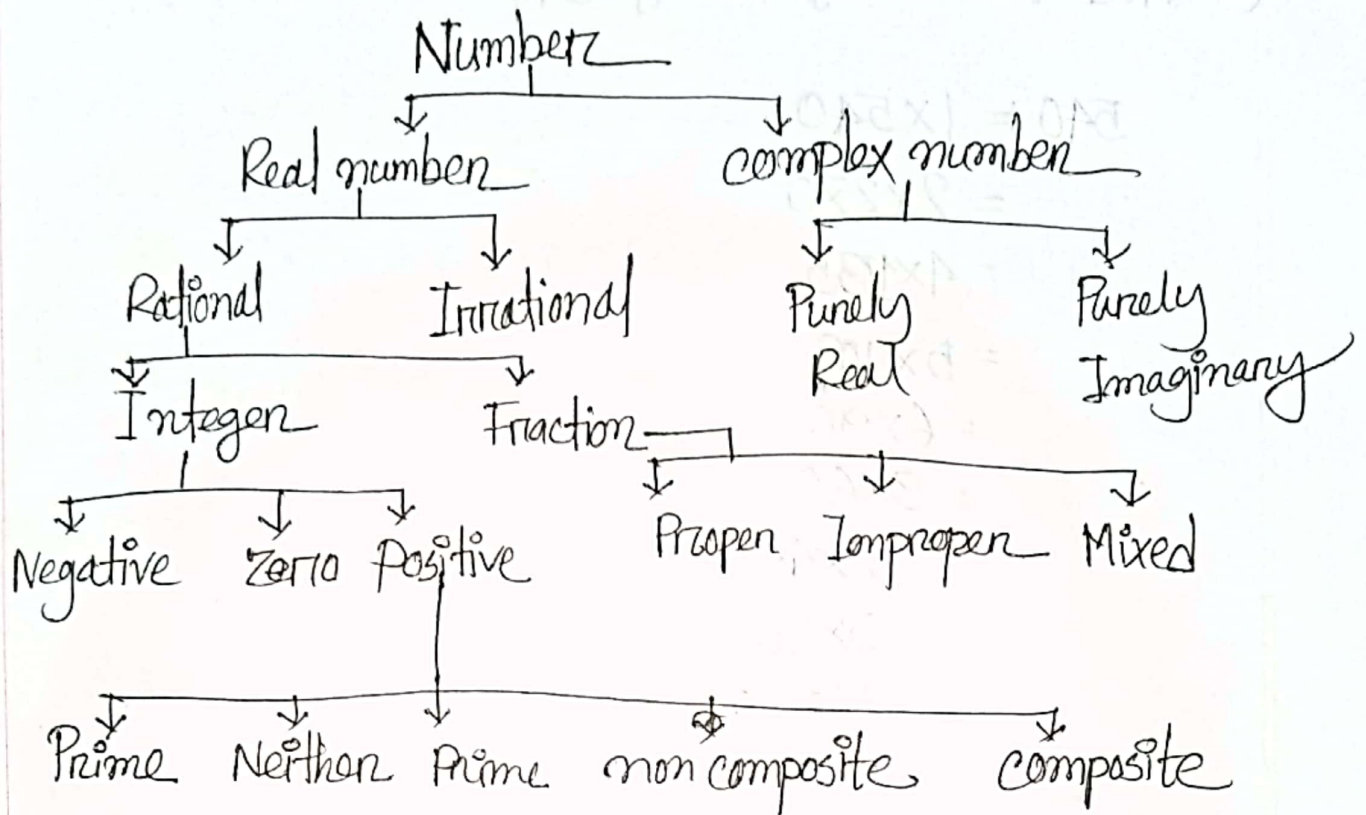 Number
Real number complex number
Rational Irrational Purely Real Purely Imaginary
Integer Fraction
Negative Zero Positive Proper Improper Mixed
Prime Neither Prime non composite composite